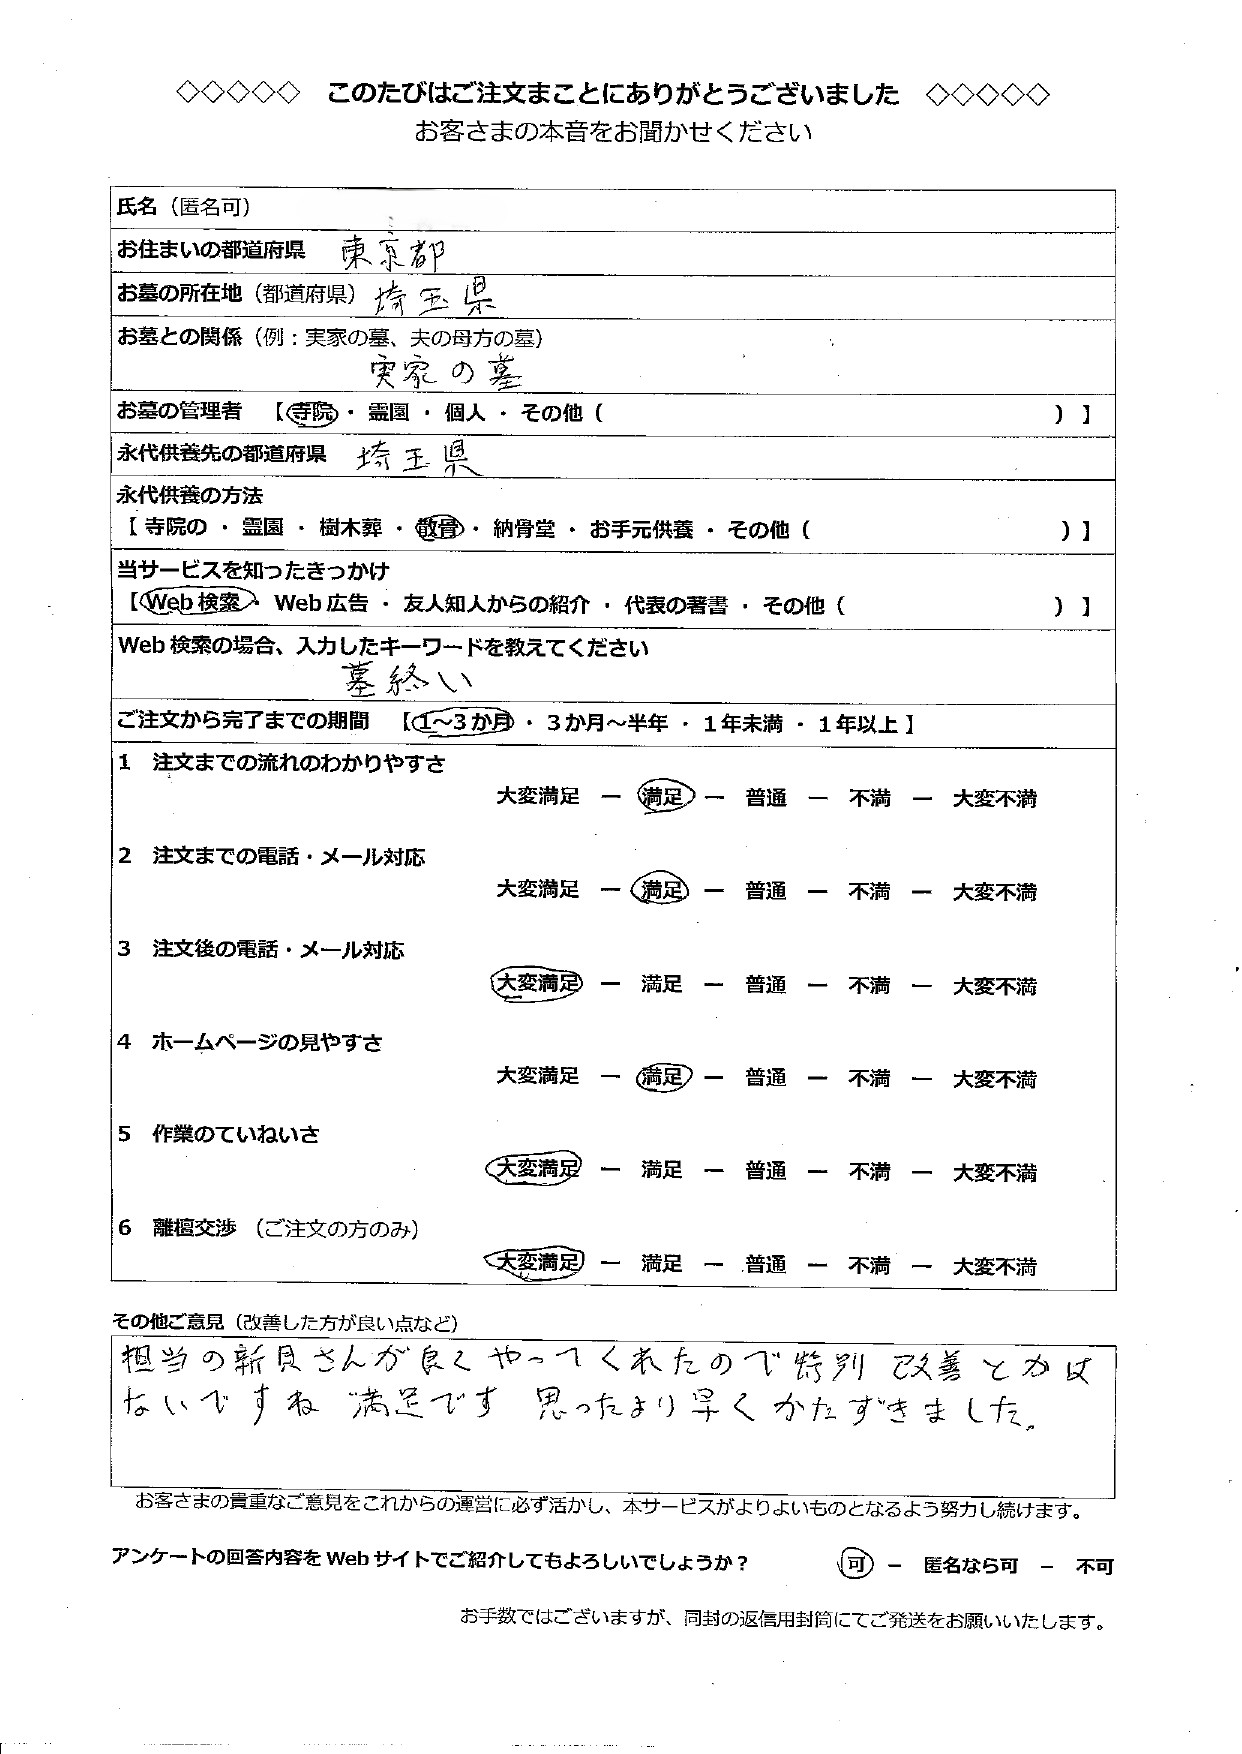 ◇◇◇◇◇ このたびはご注文まことにありがとうございました ◇◇◇◇◇
お客さまの本音をお聞かせください
氏名（匿名可）
お住まいの都道府県 東京都
お墓の所在地（都道府県） 埼玉県
お墓との関係（例：実家の墓、夫の母方の墓）
実家の墓
お墓の管理者 【寺院・ 霊園 ・ 個人 ・ その他（ ）】
永代供養先の都道府県 埼玉県
永代供養の方法
【 寺院の ・ 霊園 ・ 樹木葬 ・ 散骨 ・ 納骨堂 ・ お手元供養 ・ その他（ ）】
当サービスを知ったきっかけ
【Web 検索・ Web 広告 ・ 友人知人からの紹介 ・ 代表の著書 ・ その他（ ）】
Web 検索の場合、入力したキーワードを教えてください
墓終い
ご注文から完了までの期間 【1～3か月 ・ 3か月～半年 ・ 1年未満 ・ 1年以上】
1 注文までの流れのわかりやすさ
大変満足 － 満足 － 普通 － 不満 － 大変不満
2 注文までの電話・メール対応
大変満足 － 満足 － 普通 － 不満 － 大変不満
3 注文後の電話・メール対応
大変満足 － 満足 － 普通 － 不満 － 大変不満
4 ホームページの見やすさ
大変満足 － 満足 － 普通 － 不満 － 大変不満
5 作業のていねいさ
大変満足 － 満足 － 普通 － 不満 － 大変不満
6 離檀交渉 （ご注文の方のみ）
大変満足 － 満足 － 普通 － 不満 － 大変不満
その他ご意見（改善した方が良い点など）
担当の新貝さんが良くやってくれたので特別 改善とかは
ないですね 満足です 思ったより早くかたずきました。
お客さまの貴重なご意見をこれからの運営に必ず活かし、本サービスがよりよいものとなるよう努力し続けます。
アンケートの回答内容を Web サイトでご紹介してもよろしいでしょうか？ 可 － 匿名なら可 － 不可
お手数ではございますが、同封の返信用封筒にてご発送をお願いいたします。